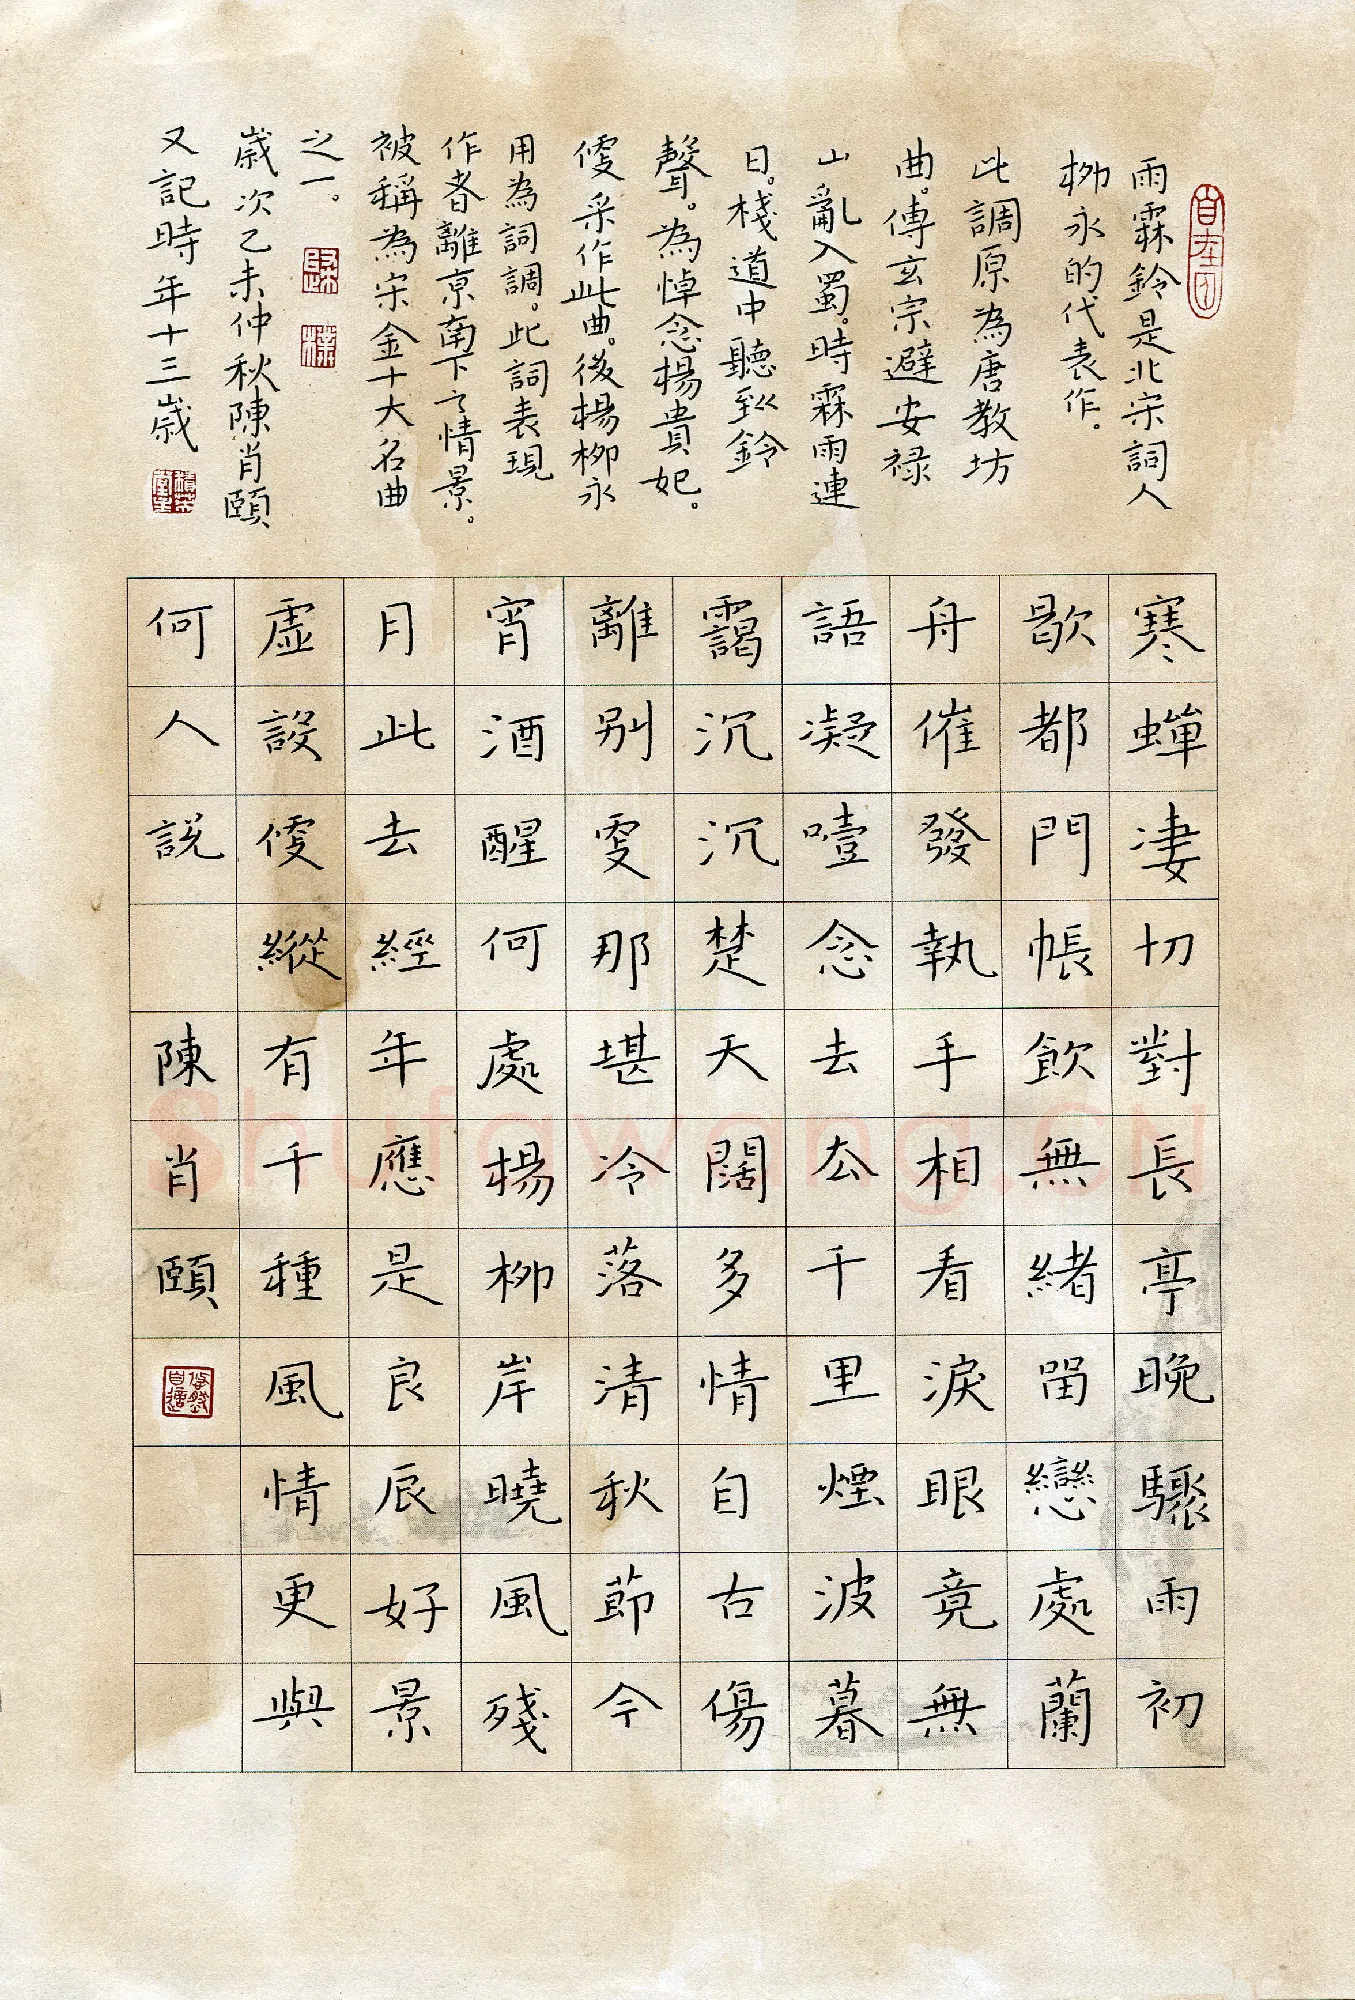 雨霖鈴是北宋詞人
柳永的代表作。
此調原為唐教坊
曲。傳玄宗避安禄
山亂入蜀。時霖雨連
日。棧道中聽到鈴
聲。為悼念楊貴妃。
便采作此曲。後楊柳永
用為詞調。此詞表現
作者離京南下之情景。
被稱為宋金十大名曲
之一。
歲次乙未仲秋陳肖頤
又記時年十三歲
寒蟬淒切對長亭晚驟雨初
歇都門帳飲無緒留戀處蘭
舟催發執手相看淚眼竟無
語凝噎念去去千里煙波暮
靄沉沉楚天闊多情自古傷
離別更那堪冷落清秋節今
宵酒醒何處楊柳岸曉風殘
月此去經年應是良辰好景
虛設便縱有千種風情更與
何人說 陳肖頤
Shufawang.CN